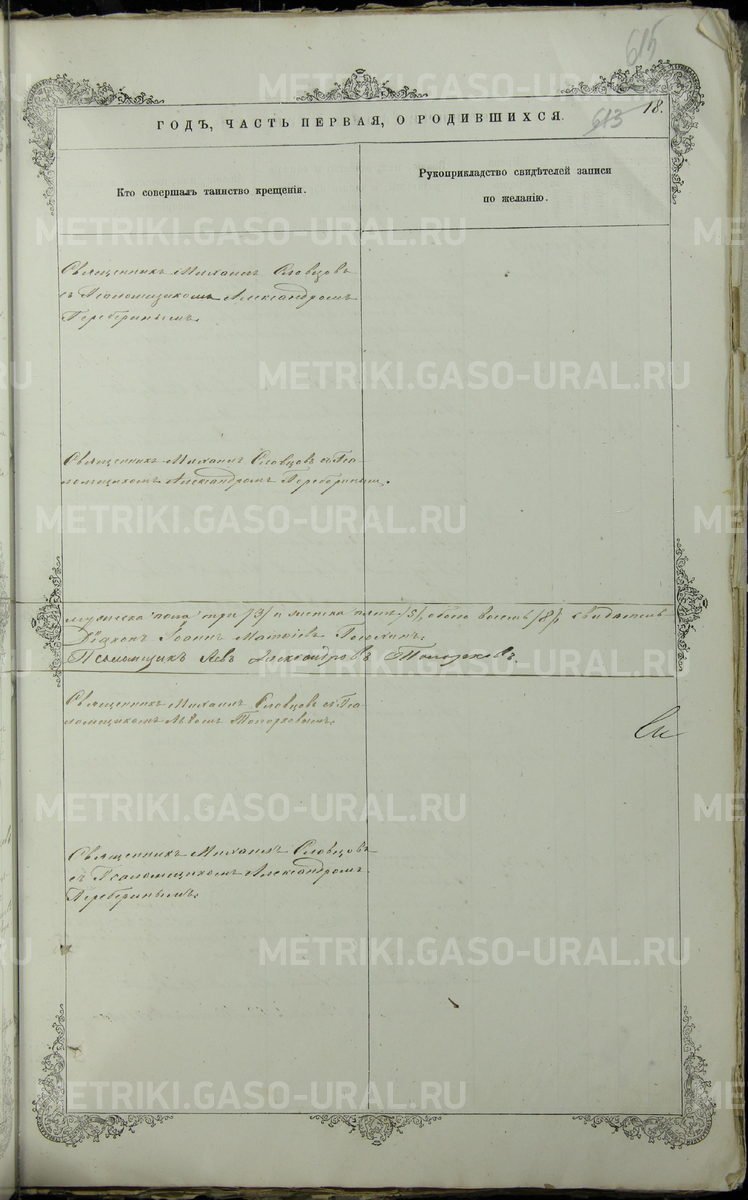 615
613
18.
ГОДЪ, ЧАСТЬ ПЕРВАЯ, О РОДИВШИХСЯ.
Кто совершалъ таинство крещенія.
Рукоприкладство свидѣтелей записи
по желанію.
Священникъ Михаилъ Словцовъ
съ Псаломщикомъ Александромъ
Переберинымъ.
Священникъ Михаилъ Словцовъ съ Пса-
ломщикомъ Александромъ Переберинымъ.
мужеска пола три /3/ и женска пять /5/, обоего восемь /8/.
Діаконъ Іоаннъ
Псаломщикъ Левъ Александровъ Топорковъ.
Священникъ Михаилъ Словцовъ съ Пса-
ломщикомъ Львомъ Топорковымъ.
Священникъ Михаилъ Словцовъ
съ Псаломщикомъ Александромъ
Переберинымъ.
METRIKI.GASO-URAL.RU